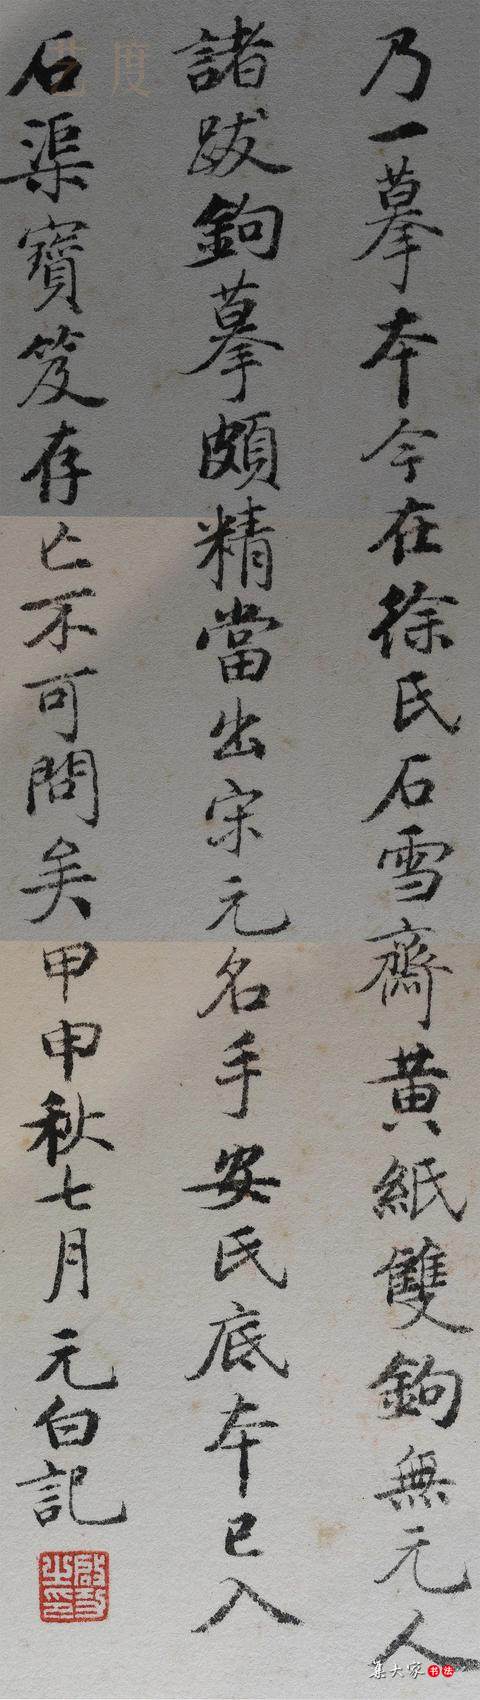 乃一摹本今在徐氏石雪齋黄紙雙鉤無元人
諸跋鉤摹頗精當出宋元名手安氏底本已入
石渠寶笈存亡不可問矣甲申秋七月元白記
啟功之印
藝度
集大家书法